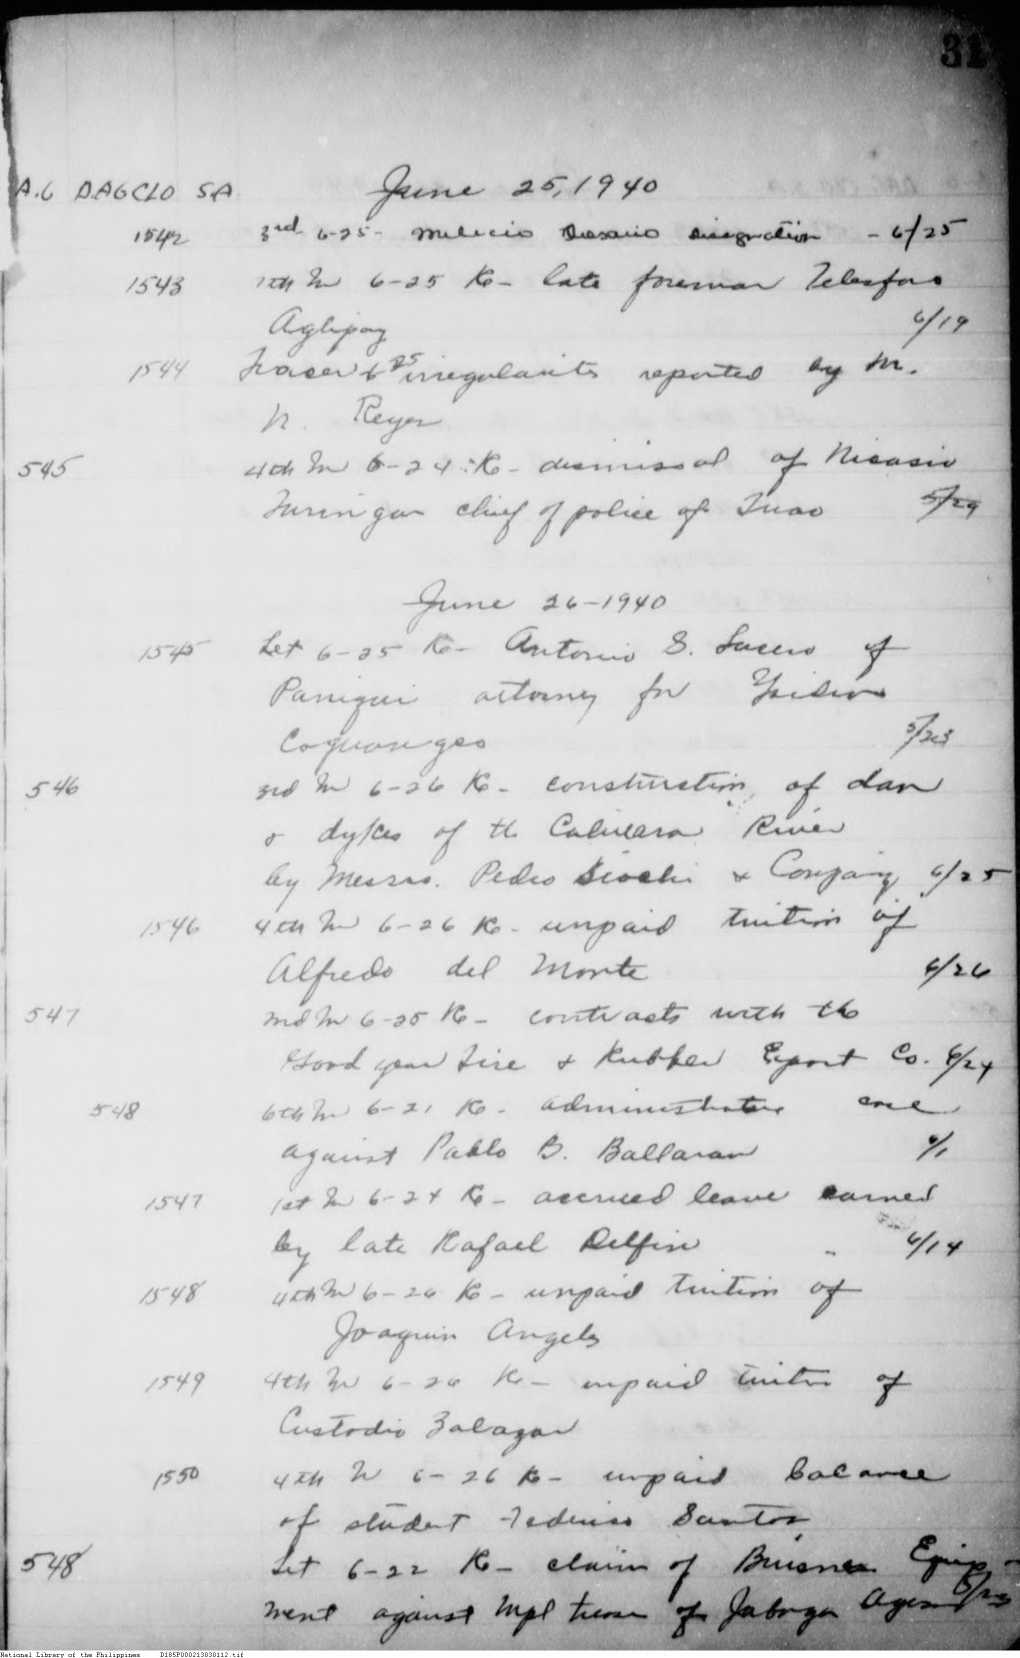 31
A.G DAGCLO SA June 25, 1940
1542 3rd 6-25- Melecio Rosario designation - 6/25
1543 7th In 6-25 Re- late foreman Telesforo
Aglipay 6/19
1544 6-25 irregularities reported by M.
N. Reyes
545 4th In 6-24 Re- dismissal of Nicasio
chief of police of Tuao 5/29
June 26-1940
1545 Let 6-25 Re- Antonio S. Lucero of
Paniqui attorney for Ysidra
Cojuangco 5/23
546 3rd In 6-26 Re- construction of dam
& dykes of the River
by Messrs. Pedro Siochi & Company 6/25
1546 4th In 6-26 Re- unpaid tuition of
Alfredo del Monte 6/26
547 2nd In 6-25 Re- contracts with the
Good year Tire & Rubber Export Co. 6/24
548 6th In 6-21 Re- administrative case
against Pablo B. Ballaran 6/1
1547 1st In 6-24 Re- accrued leave earned
by late Rafael Delfin 6/14
1548 4th In 6-26 Re- unpaid tuition of
Joaquin Angeles
1549 4th In 6-26 Re- unpaid tuition of
Custodio Zalazar
1550 4th In 6-26 Re- unpaid balance
of student Federico Santos
548 Let 6-22 Re- claim of Business Equip-
ment against Mpl treas of Jabonga Agusan
National Library of the Philippines D185P000213830112.tif